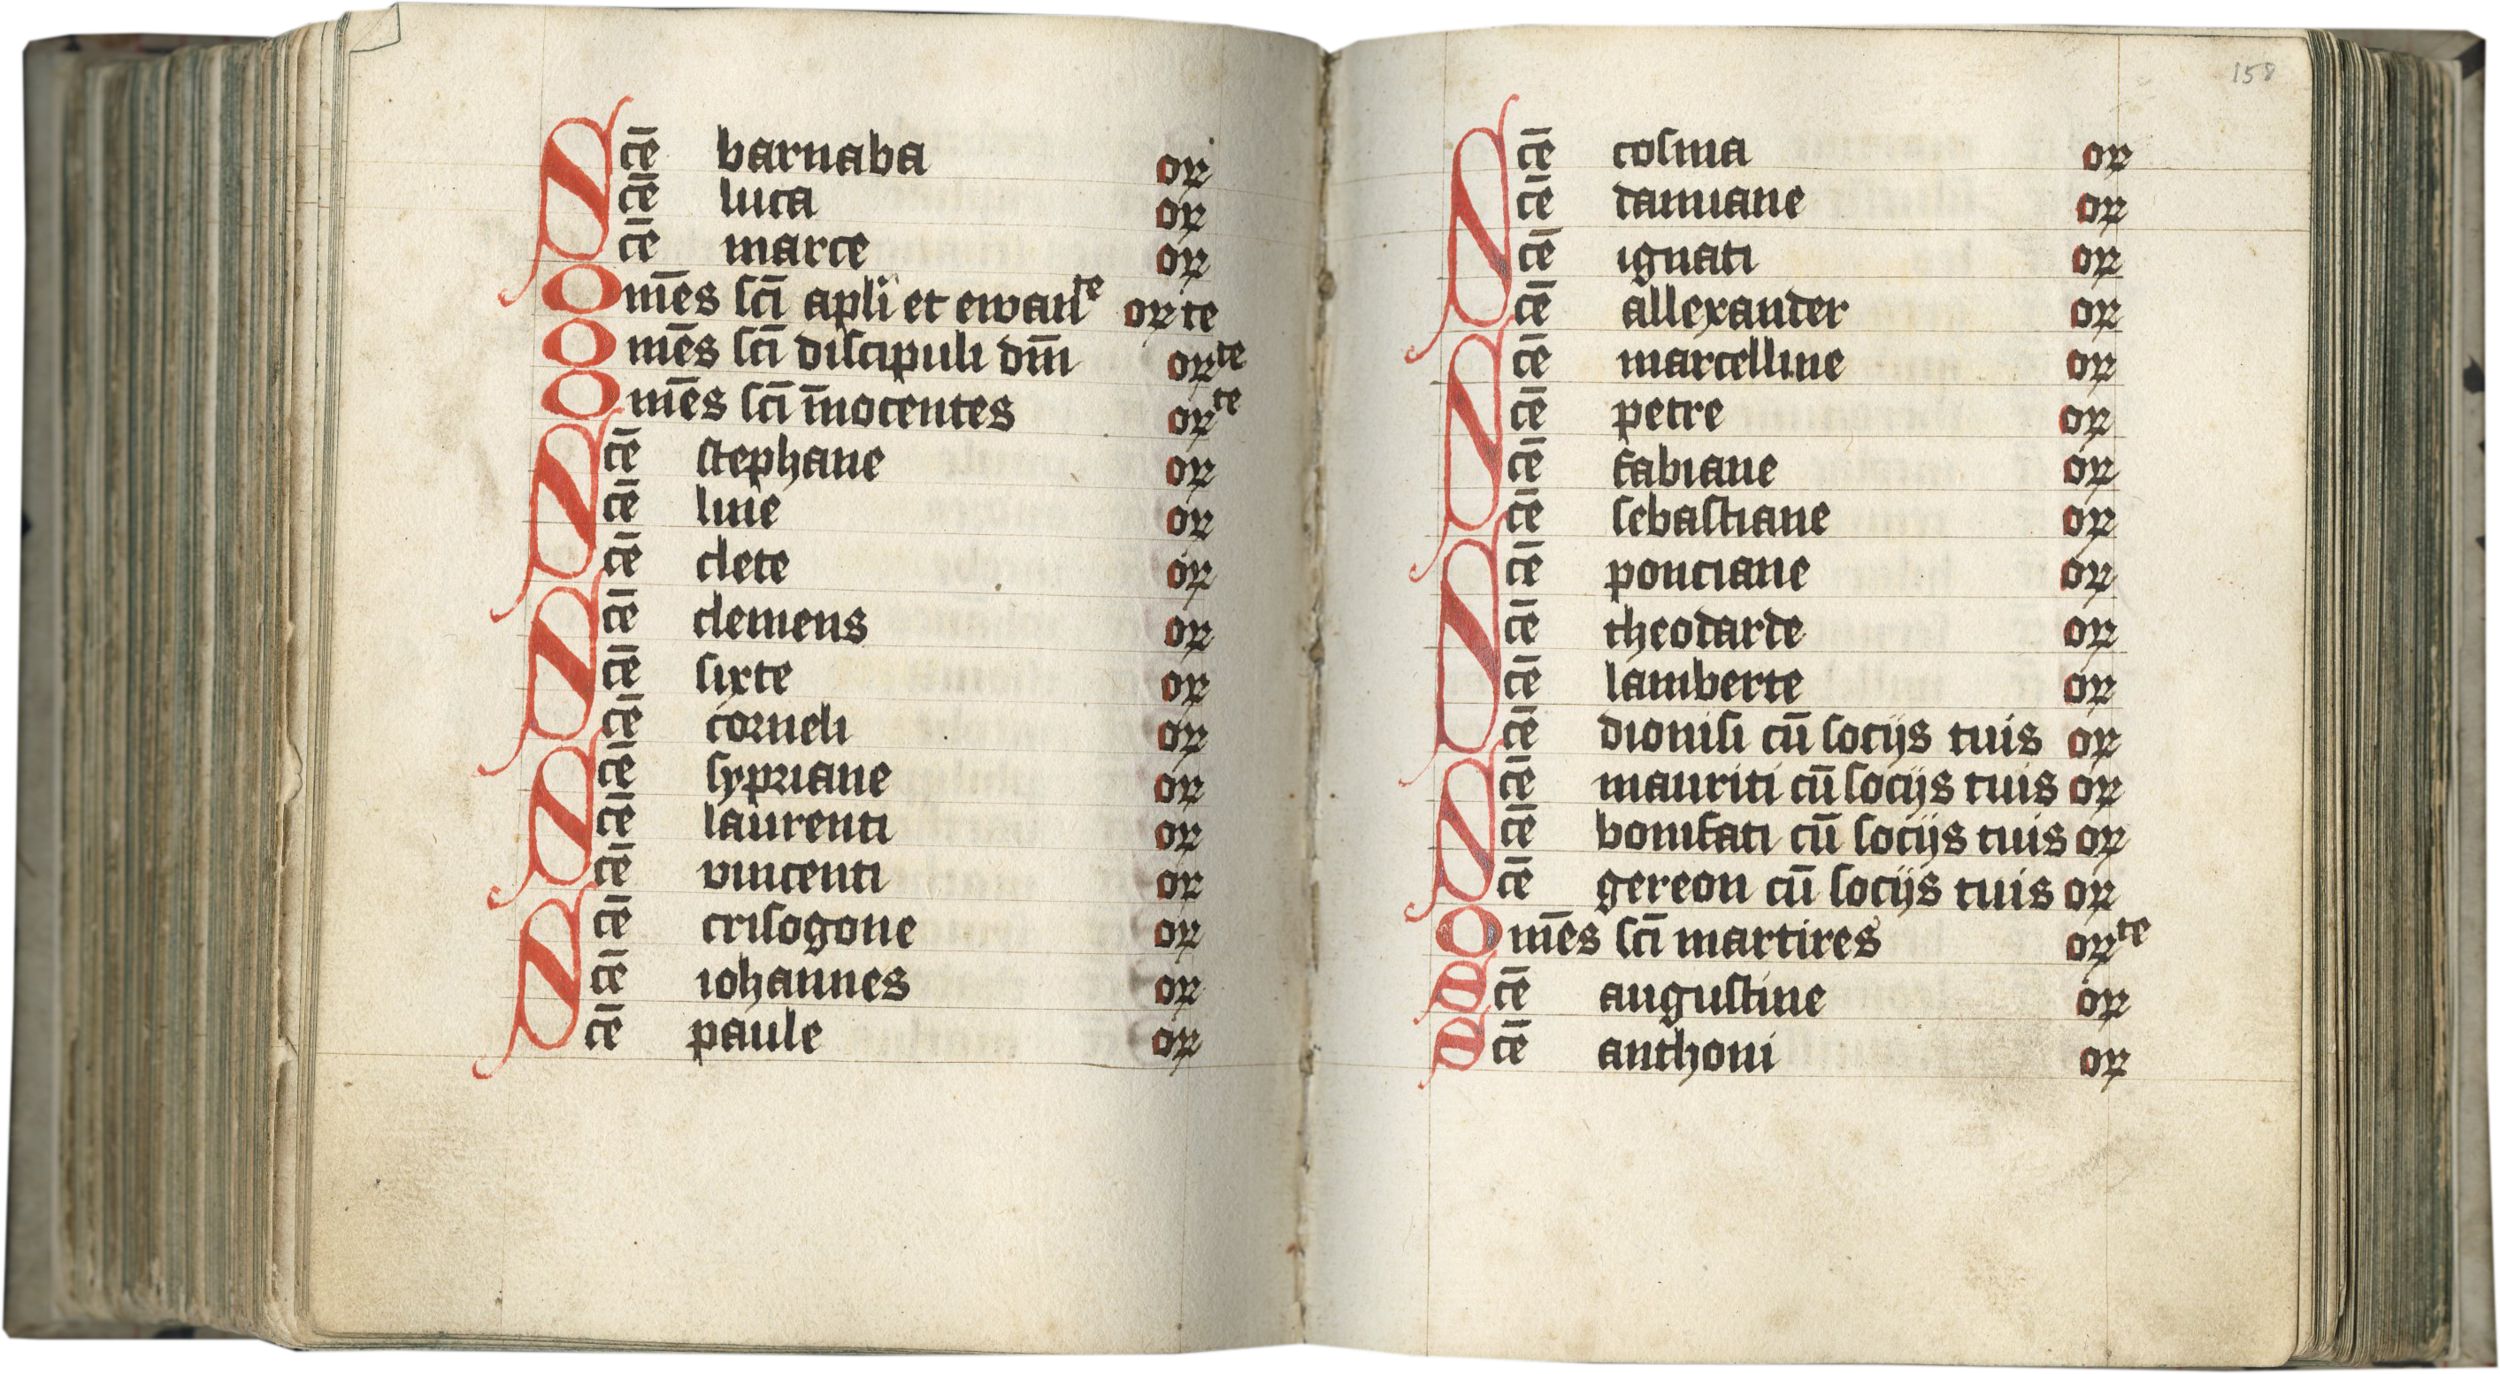 Scē barnaba or
cē luca or
cē marce or
Om̄es scī apli et ewanͭͤ or te
Om̄es scī discipuli dm̄i orte
Om̄es scī īnocentes orte
Scē stephane or
cē line or
cē clete or
Scē clemens or
cē sixte or
cē corneli or
Scē sypriane or
cē laurenti or
cē vincenti or
Scē crisogone or
cē iohannes or
cē paule or
158
Scē cosma or
cē damiane or
cē ignati or
cē allexander or
Scē marcelline or
cē petre or
cē fabiane or
cē sebastiane or
Scē ponciane or
cē theodarde or
cē lamberte or
cē dionisi cū socijs tuis or
Scē mauriti cū socijs tuis or
cē bonifati cū socijs tuis or
cē gereon cū socijs tuis or
Om̄es scī martires orte
Scē augustine or
Scē anthoni or